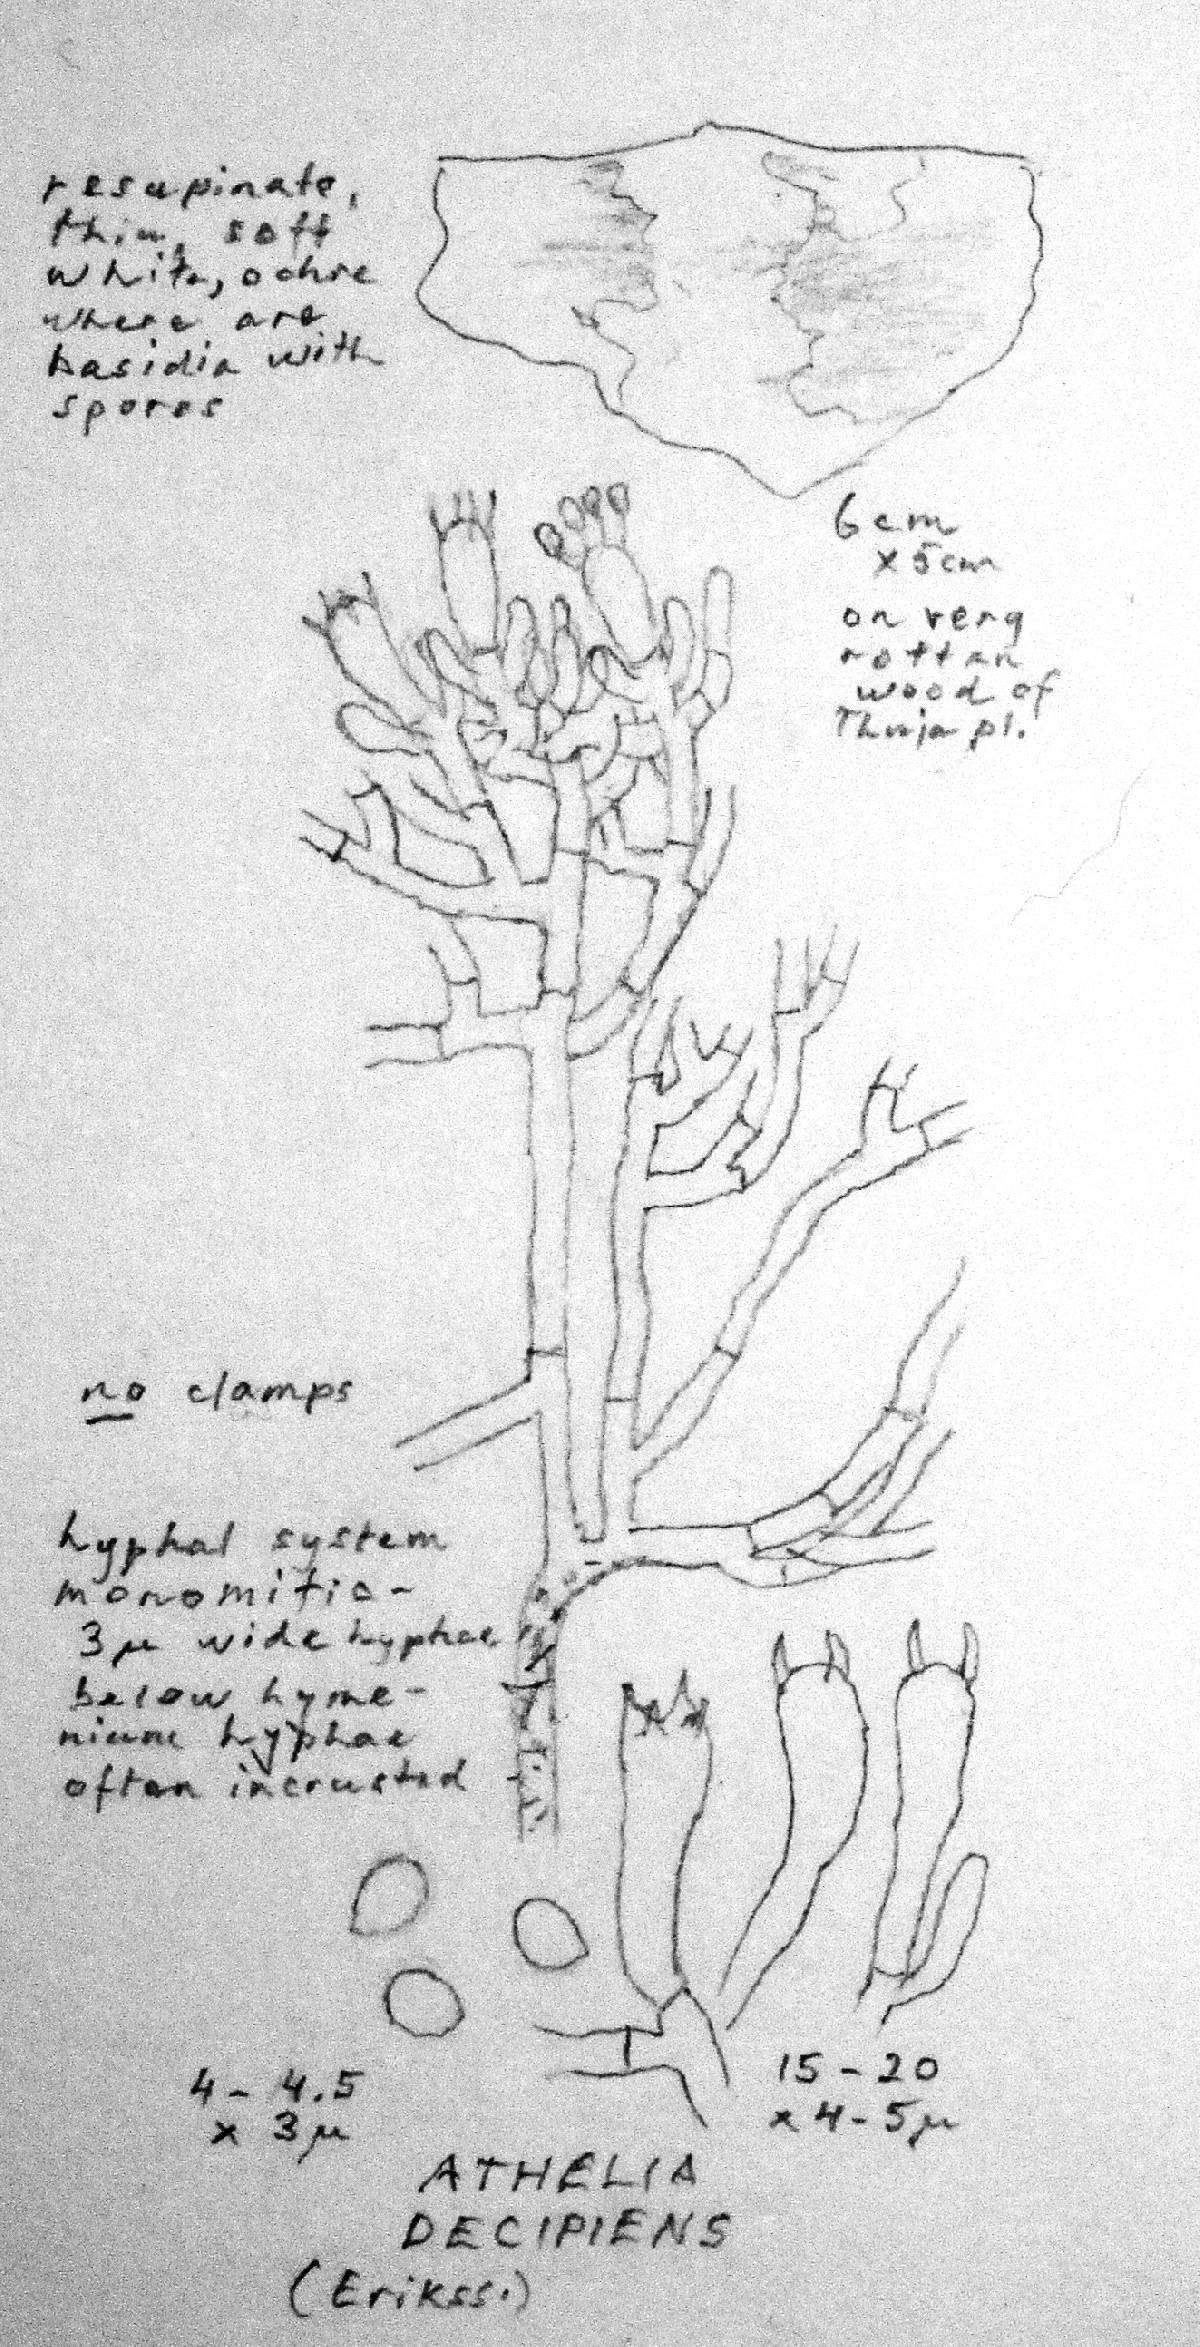 resupinate,
thin, soft
white, ochre
where are
basidia with
spores
6cm
x 5cm
on very
rotten
wood of
Thuja pl.
no clamps
hyphal system
monomitic-
3µ wide hyphae
below hyme-
nium hyphae
often incrusted
4 - 4.5
x 3µ
15 - 20
x 4-5µ
ATHELIA
DECIPIENS
(Erikss.)